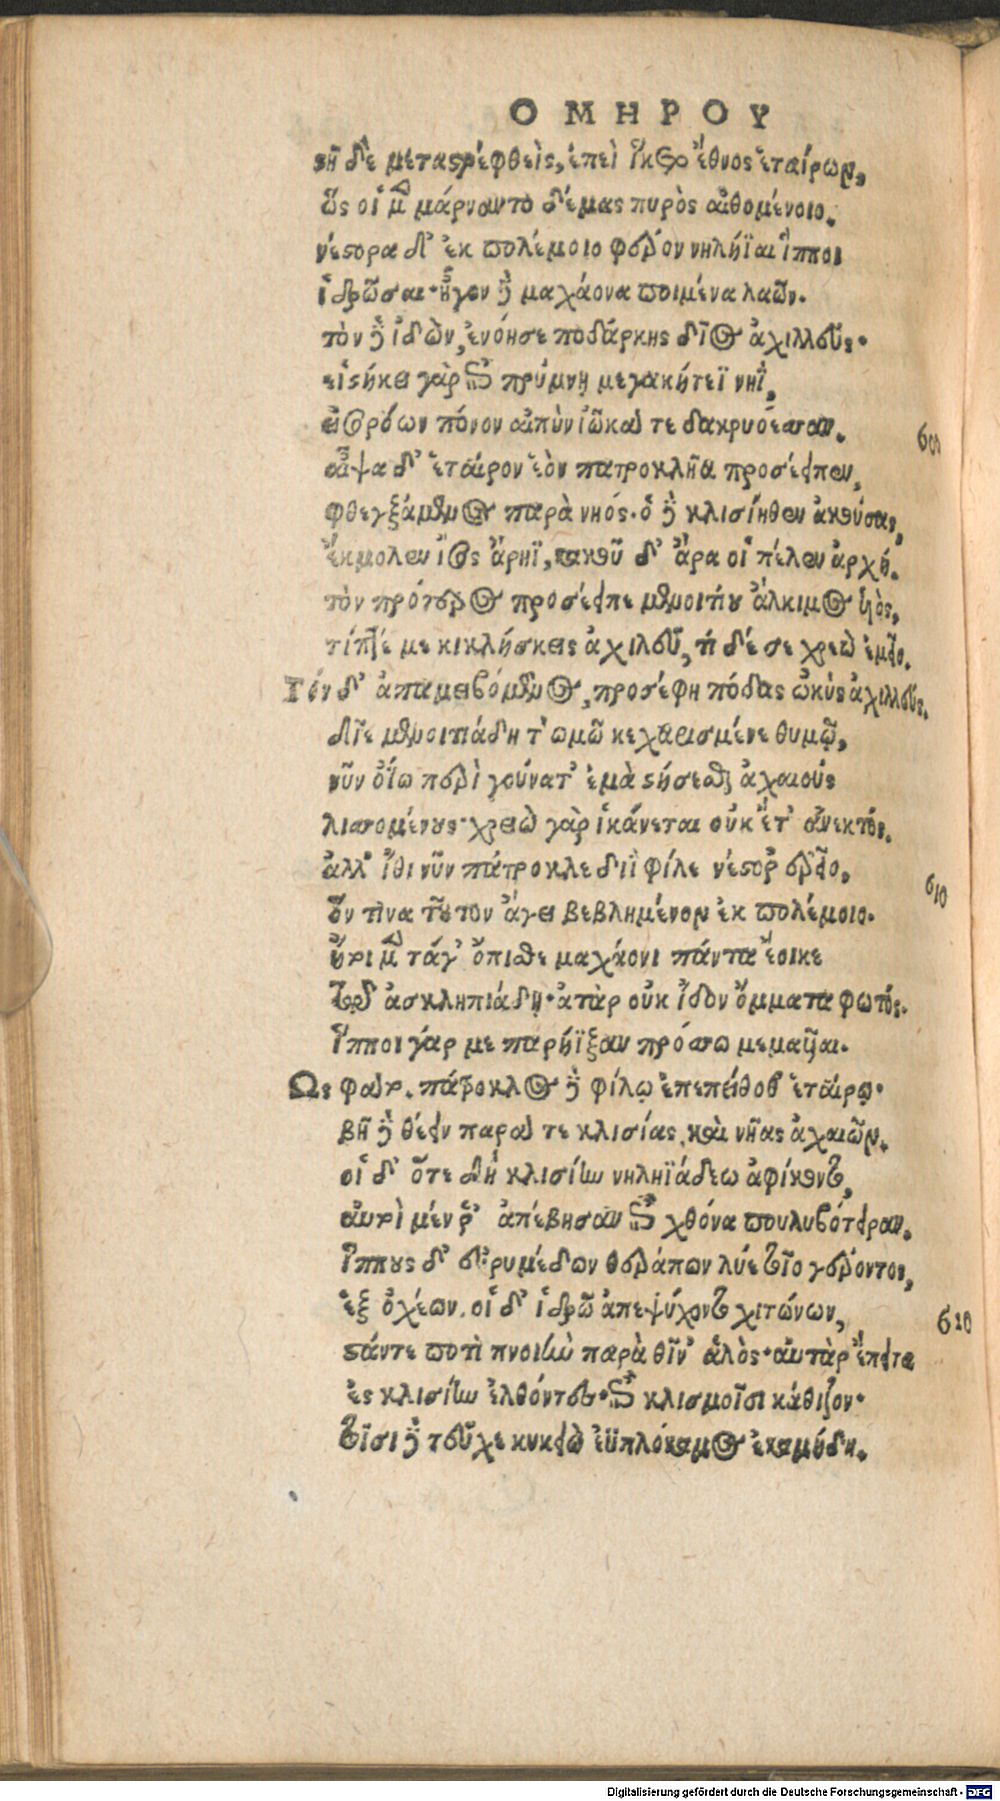 ΟΜΗΡΟΥ
στῆ δὲ μεταστρεφθεὶς, ἐπεὶ ἵκετο ἔθνος ἑταίρων,
ὣς οἱ μὲν μάρναντο δέμας πυρὸς αἰθομένοιο.
νέστορα δ' ἐκ πολέμοιο φέρον νηλήϊαι ἵπποι
ἱδρῶσαι· ἦγον δὲ μαχάονα ποιμένα λαῶν.
τὸν δὲ ἰδὼν, ἐνόησε ποδάρκης δῖος ἀχιλλεύς·
εἱστήκει γὰρ ἐπὶ πρύμνῃ μεγακήτεϊ νηῒ,
εἰσορόων πόνον αἰπὺν ἰῶκά τε δακρυόεσσαν. 600
αἶψα δ' ἑταῖρον ἑὸν πατροκλῆα προσέειπεν,
φθεγξάμενος παρὰ νηός· ὁ δὲ κλισίηθεν ἀκούσας,
ἔκμολεν ἶσος ἄρηϊ, κακοῦ δ' ἄρα οἱ πέλεν ἀρχή.
τὸν πρότερος προσέειπε μενοιτίου ἄλκιμος υἱὸς,
τίπτέ με κικλήσκεις ἀχιλεῦ, τί δέ σε χρεὼ ἐμεῖο.
Τόν δ' ἀπαμειβόμενος, προσέφη πόδας ὠκὺς ἀχιλλεύς.
δῖε μενοιτιάδη τ' ὠμῷ κεχαρισμένε θυμῷ,
νῦν ὀΐω περὶ γούνατ' ἐμὰ στήσεσθαι ἀχαιούς
λισσομένους· χρειὼ γὰρ ἱκάνεται οὐκ ἔτ' ἀνεκτός.
ἀλλ' ἴθι νῦν πάτροκλε διῒ φίλε νέστορ' ἔρειο, 610
ὅν τινα τοῦτον ἄγει βεβλημένον ἐκ πολέμοιο.
ἤτοι μὲν τάγ' ὄπισθε μαχάονι πάντα ἔοικε
τῷ ἀσκληπιάδῃ· ἀτὰρ οὐκ ἴδον ὄμματα φωτός.
ἵπποι γάρ με παρήϊξαν πρόσσω μεμαυῖαι.
Ὣς φάτο. πάτροκλος δὲ φίλῳ ἐπεπείθεθ' ἑταίρῳ·
βῆ δὲ θέειν παρά τε κλισίας, καὶ νῆας ἀχαιῶν.
οἱ δ' ὅτε δὴ κλισίην νηληϊάδεω ἀφίκοντο,
αὐτοὶ μέν ῥ' ἀπέβησαν ἐπὶ χθόνα πουλυβότειραν.
ἵππους δ' εὐρυμέδων θεράπων λύε τοῖο γέροντος,
ἐξ ὀχέων. οἱ δ' ἱδρῶ ἀπεψύχοντο χιτώνων, 620
στάντε ποτὶ πνοιὴν παρὰ θῖν' ἁλὸς· αὐτὰρ ἔπειτα
ἐς κλισίην ἐλθόντες· ἐπὶ κλισμοῖσι κάθιζον·
τοῖσι δὲ τεῦχε κυκειῶ ἐϋπλόκαμος ἑκαμήδη.
Digitalisierung gefördert durch die Deutsche Forschungsgemeinschaft - DFG